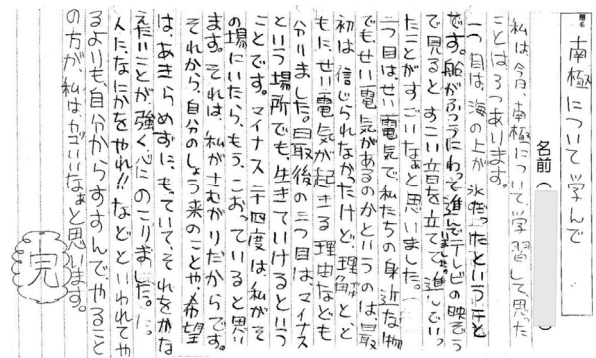 題名
南極について学んで
名前(
私は、今日、南極について、学習して思った
ことは3つあります。
一つ目は、海の上が氷だったという事と
です。船がふつうにわって進んでテレビの映ぞう
で見ると、すごい音を立てて進んでいっ
たことがすごいなぁと思いました。
二つ目はせい電気で私たちの身近な物
でもせい電気があるのかというのは、最
初は信じられなかったけど、理解とと
もにせい電気が起きる理由なども
分りました。最後の三つ目は、マイナス
という場所でも、生きていけるという
ことです。マイナス二十四度は、私がそ
の場にいたら、もう、こおっていると思い
ます。それは、私がさむがりだからです。
それから、自分のしょう来のことや、希望
は、あきらめずに、もっていて、それをかな
えたいことが、強く心にのこりました。
人になにかをやれ!!などといわれてや
るよりも、自分からすすんでやること
の方が、私は、カッコいいなぁと思います。
完